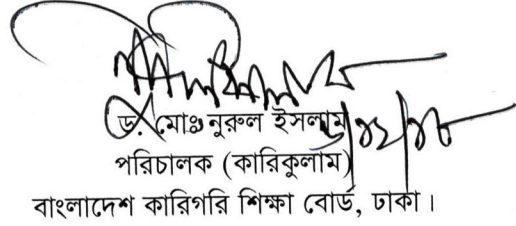 ড. মোঃ নুরুল ইসলাম
পরিচালক (কারিকুলাম)
বাংলাদেশ কারিগরি শিক্ষা বোর্ড, ঢাকা।